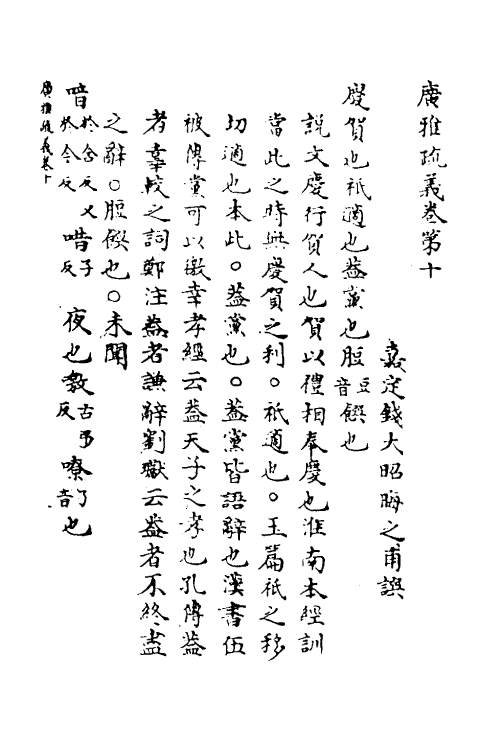 廣雅疏義卷第十
嘉定錢大昭晦之甫譔
慶賀也祇適也葢黨也脰音豆饌也
說文慶行賀人也賀以禮相奉慶也淮南本經訓
當此之時無慶賀之利○祇適也○玉篇祇之移
切適也本此○葢黨也○葢黨皆語辭也漢書伍
被傳黨可以徼幸孝經云葢天子之孝也孔傳葢
者辜較之詞鄭注葢者謙辭劉瓛云葢者不終盡
之辭○脰饌也○未聞
喑於含反又於今反唶子夜反也敎古弔反嘹音了也
廣雅疏義卷十